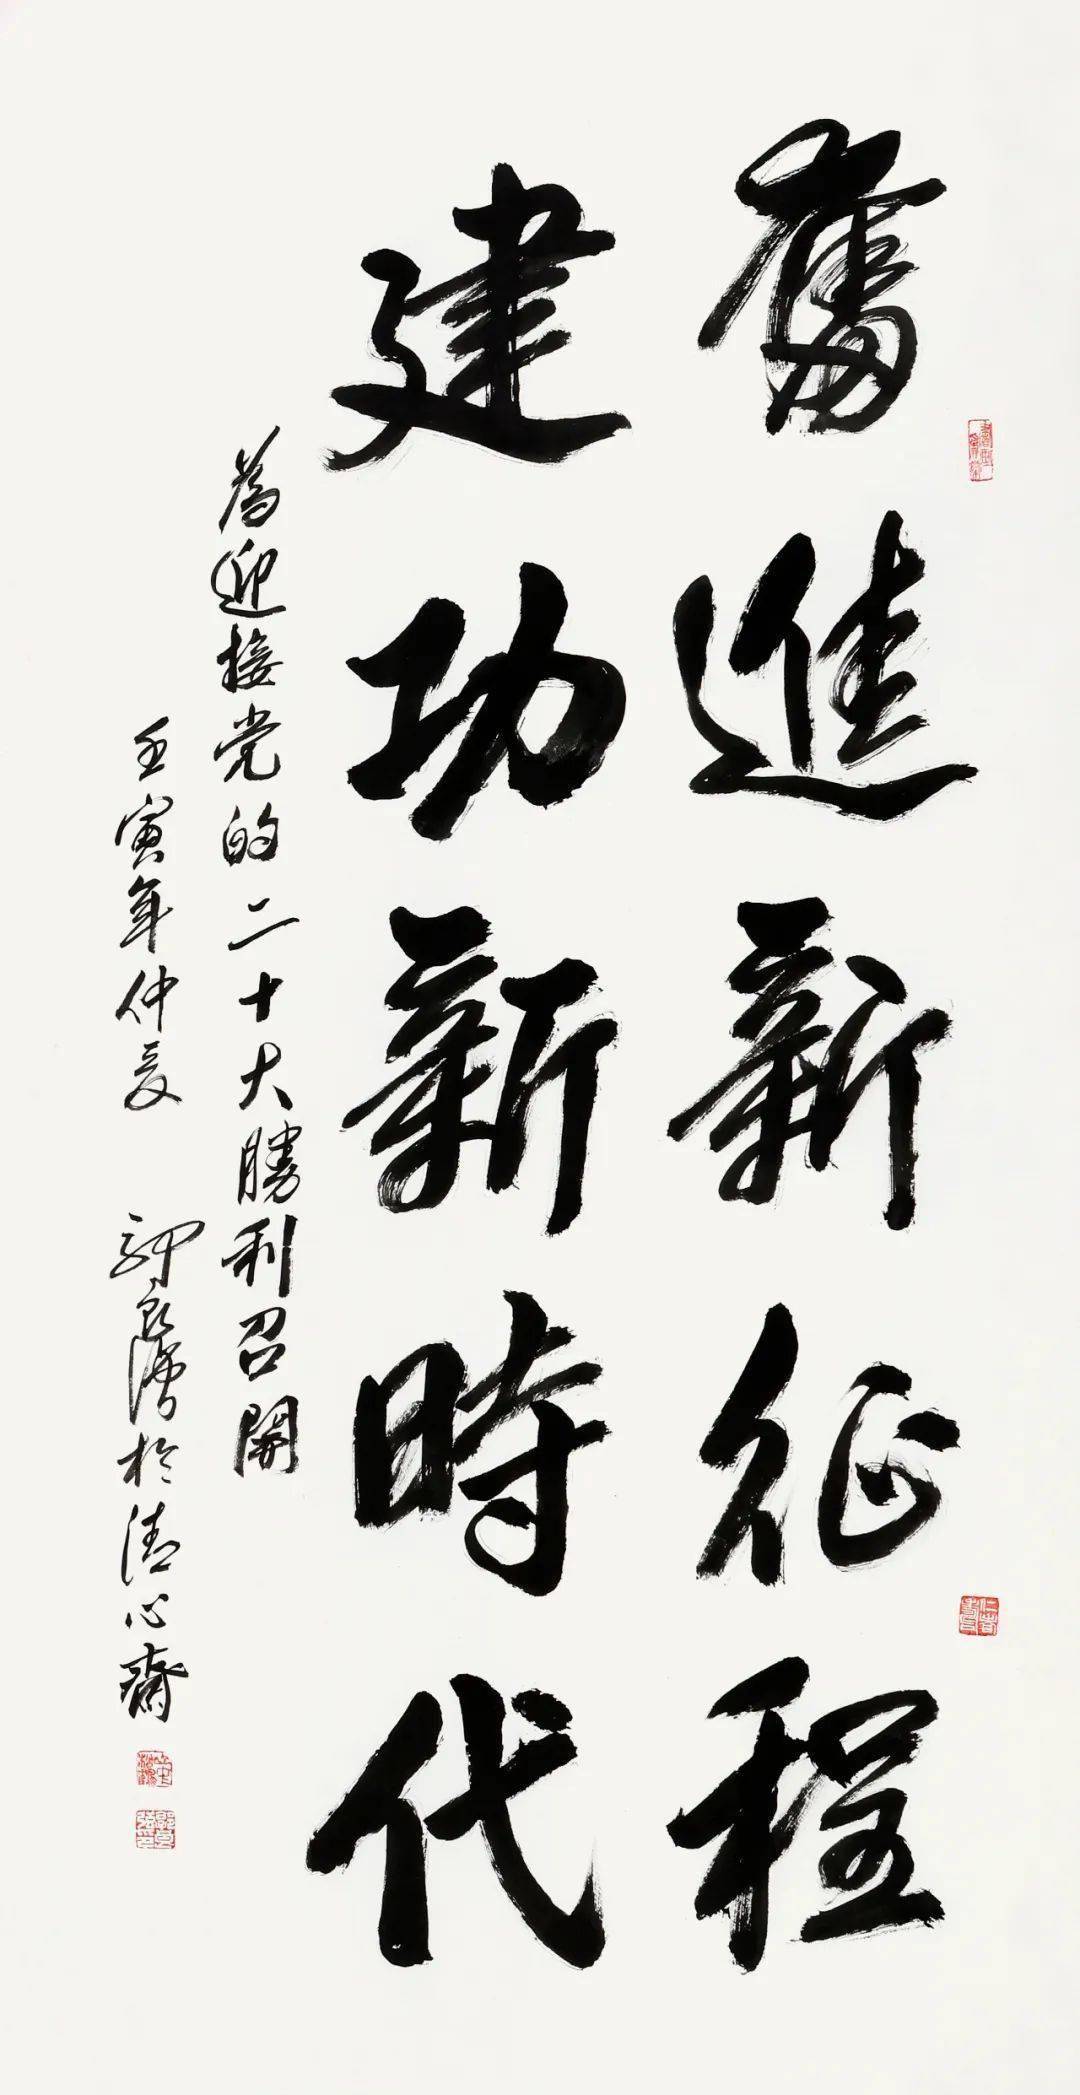 奮進新征程
建功新時代
為迎接党的二十大勝利召開
壬寅年仲夏 郭於清心齋